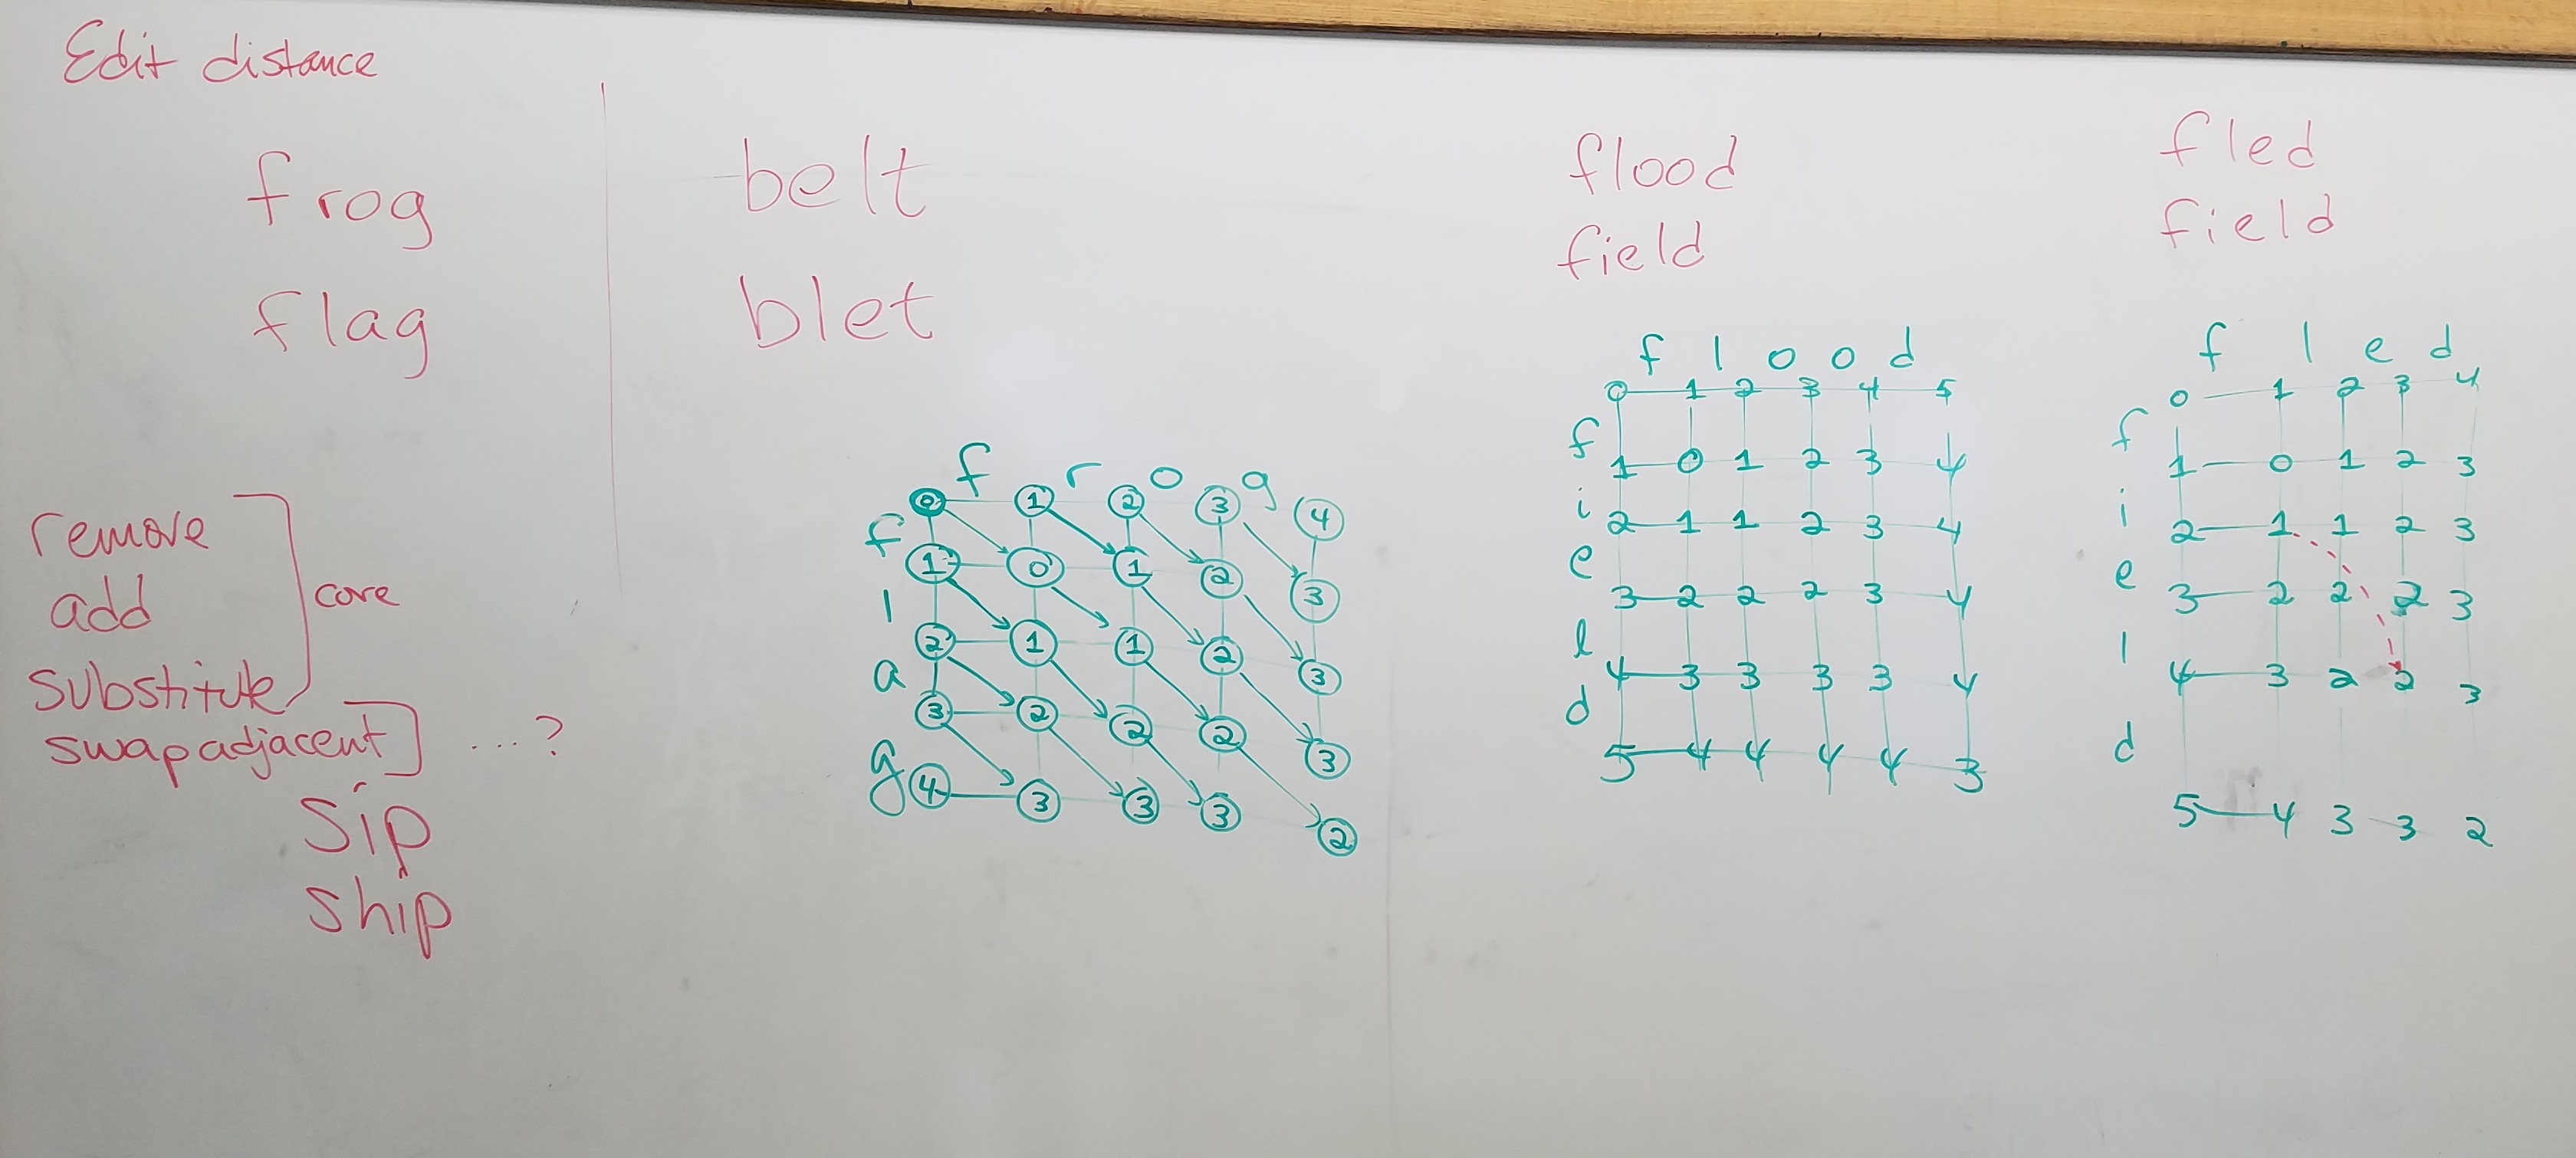 Edit distance
frog
flag
remove
add
substitute
core
swap adjacent
...?
sip
ship
belt
blet
f r o g
0 1 2 3 4
f
1 0 1 2 3
l
2 1 1 2 3
a
3 2 2 2 3
g
4 3 3 3 2
flood
field
f l o o d
0 1 2 3 4 5
f
1 0 1 2 3 4
i
2 1 1 2 3 4
e
3 2 2 2 3 4
l
4 3 3 3 3 4
d
5 4 4 4 4 3
fled
field
f l e d
0 1 2 3 4
f
1 0 1 2 3
i
2 1 1 2 3
e
3 2 2 2 3
l
4 3 2 2 3
d
5 4 3 3 2